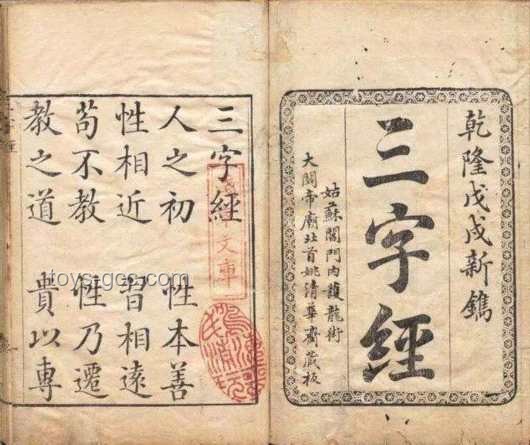 乾隆戊戌新鐫
三字經
姑蘇閶門內護龍街
大關帝廟北首姚清華齋藏板
三字經
人之初　性本善
性相近　習相遠
苟不教　性乃遷
教之道　貴以專
文庫
toys-gcs.com